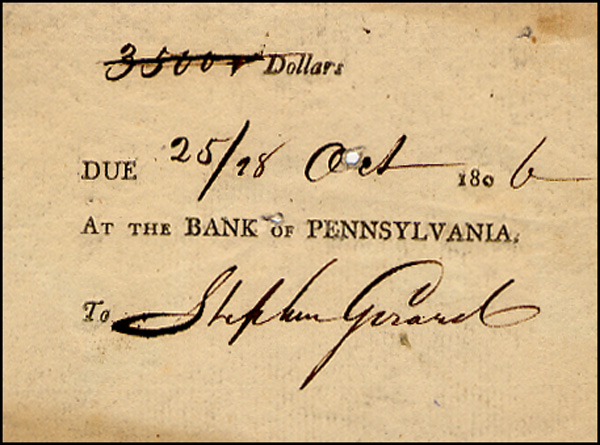 3500 Dollars
DUE 25/28 Oct 1806
AT THE BANK OF PENNSYLVANIA.
To Stephen Girard